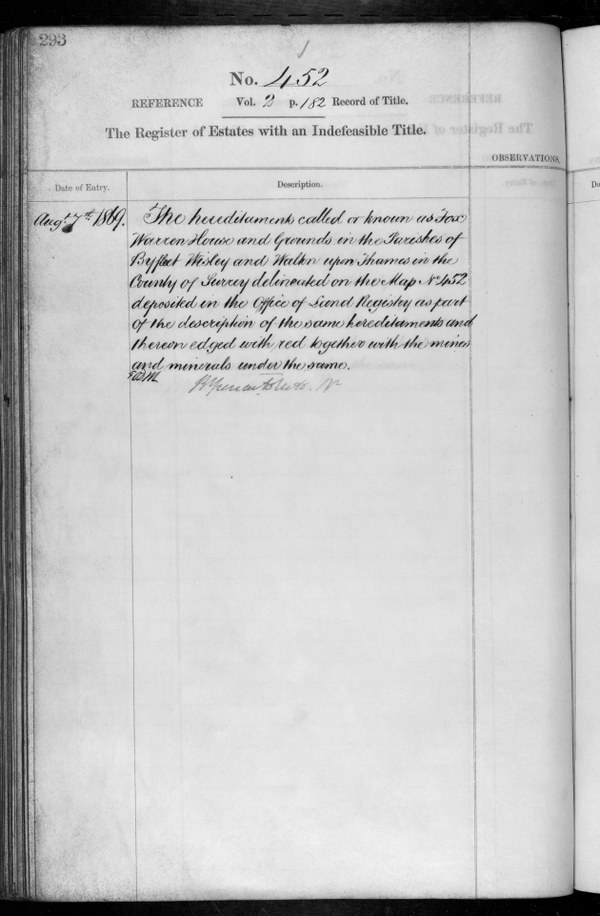 293
No. 452
REFERENCE Vol. 2 p. 182 Record of Title.
The Register of Estates with an Indefeasible Title.
OBSERVATIONS.
Date of Entry.
Description.
Augt. 7th. 1869.
The hereditaments called or known as Fox
Warren House and Grounds in the Parishes of
Byfleet Wisley and Walton upon Thames in the
County of Surrey delineated on the Map No 452
deposited in the Office of Land Registry as part
of the description of the same hereditaments and
thereon edged with red together with the mines
and minerals under the same.